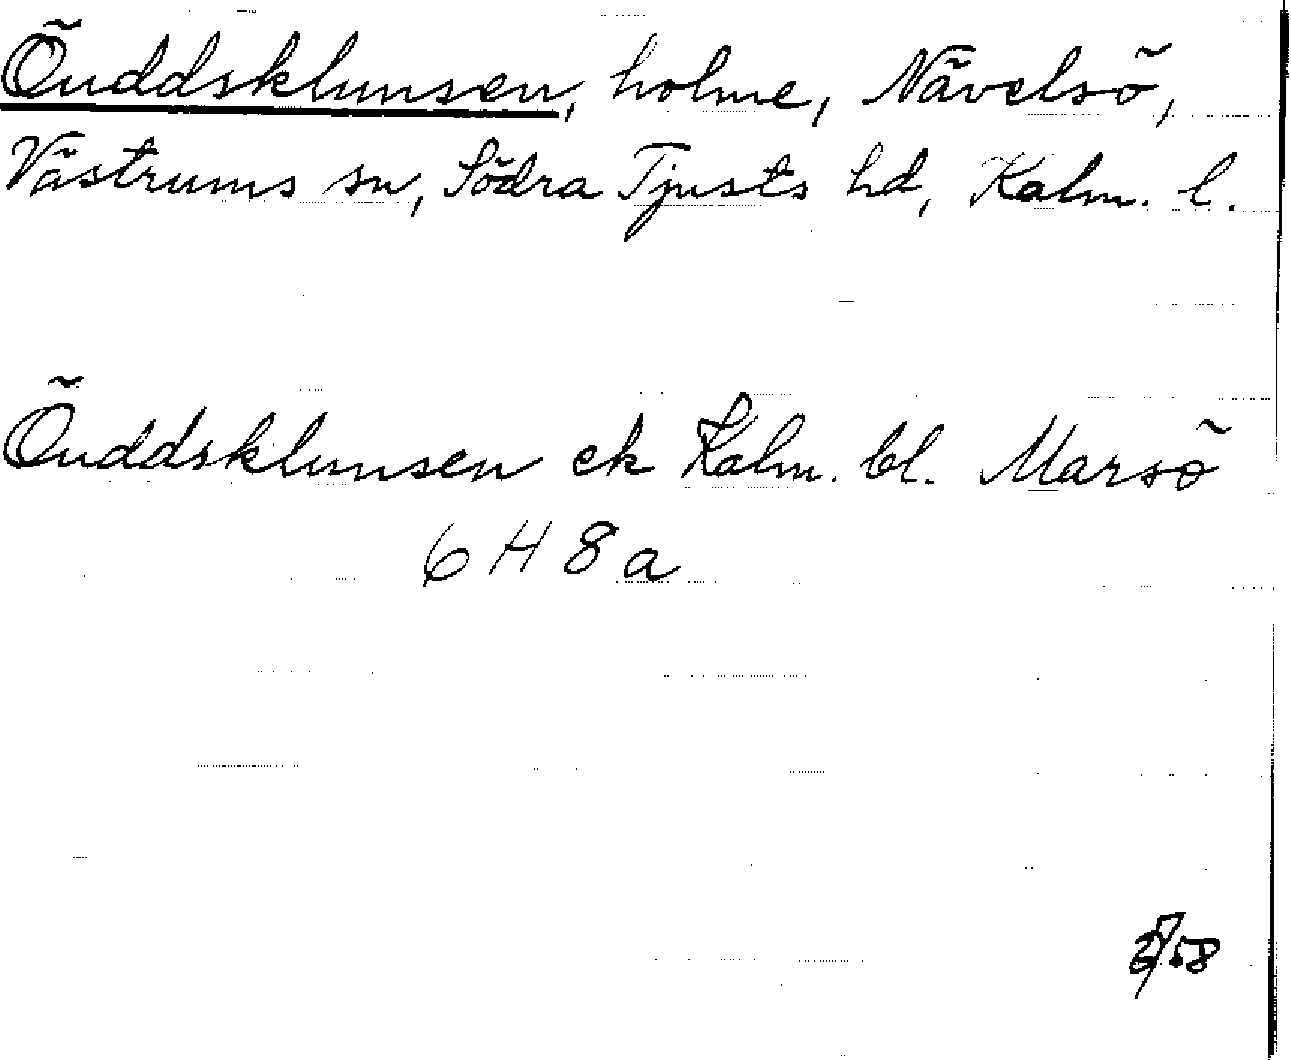 Öuddsklunsen, holme, Nävelsö,
Västrums sn, Södra Tjusts hd, Kalm. l.
Öuddsklunsen ek Kalm. bl. Marsö
6 H 8 a